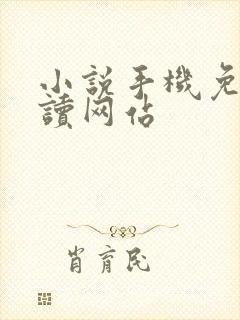 小説手機免
讀网佔
肖育民